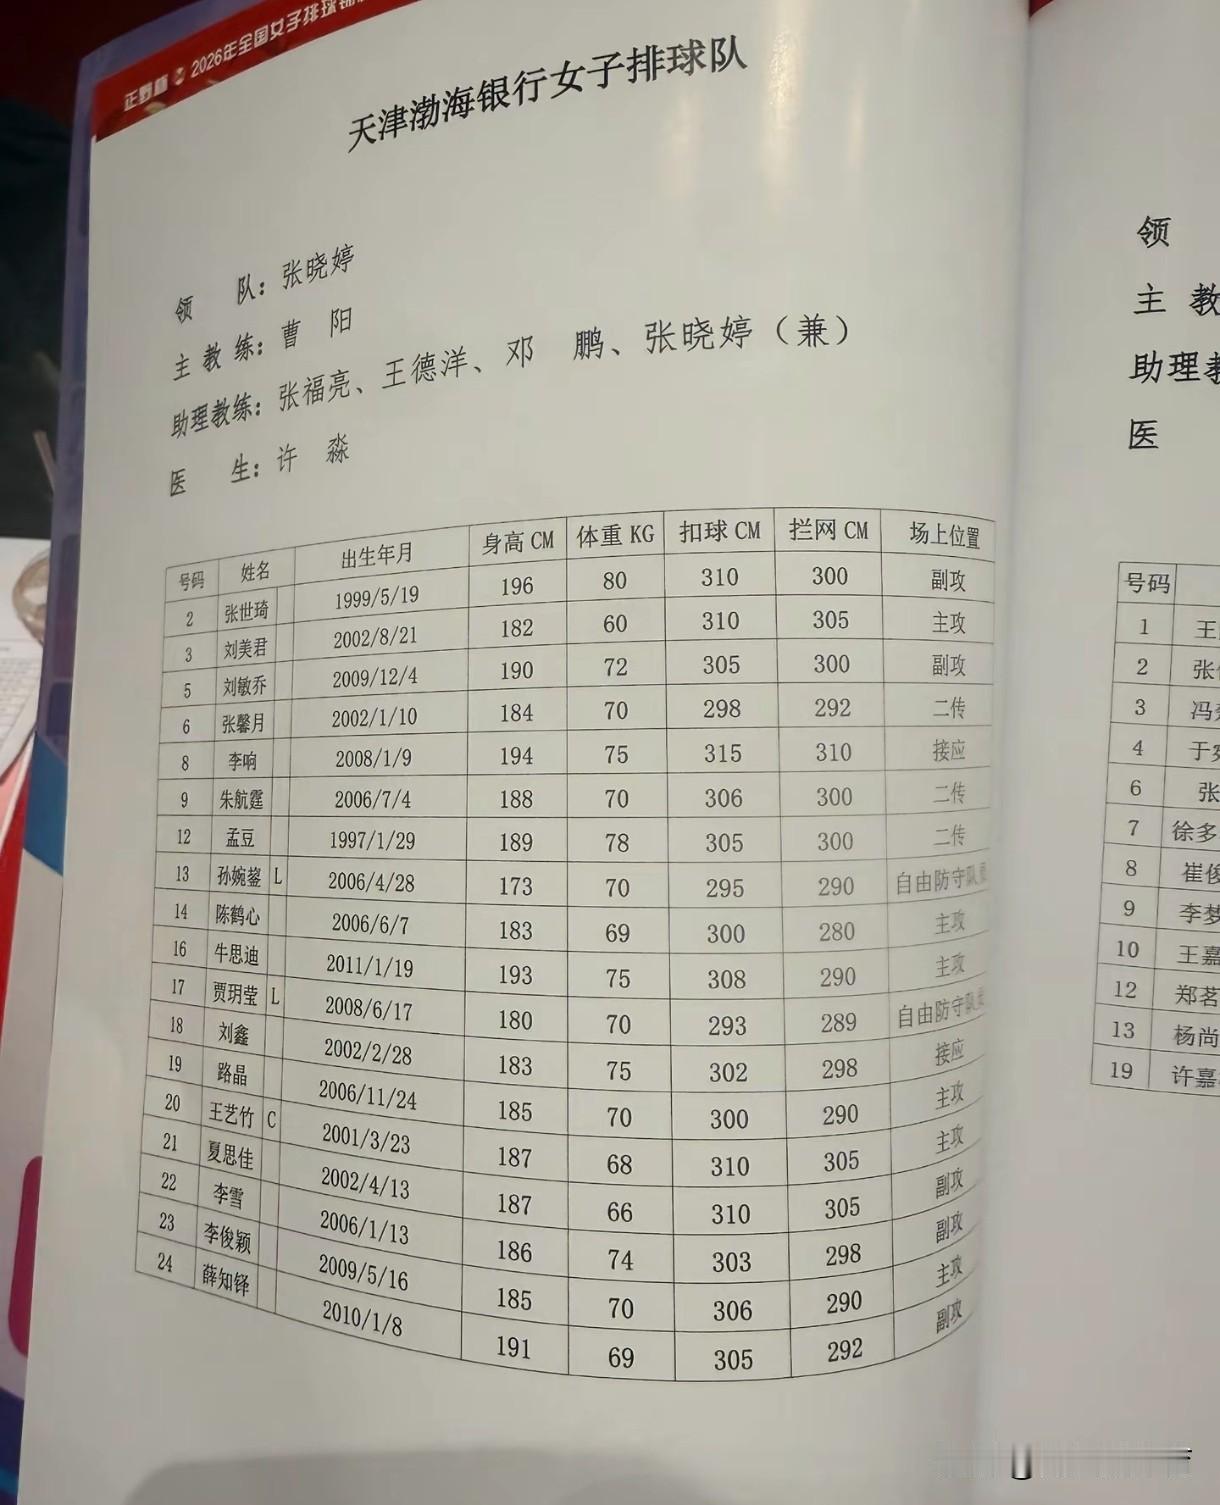 正野杯 2026年全国女子排球锦
天津渤海银行女子排球队
领 队：张晓婷
主 教 练：曹 阳
助理教练：张福亮、王德洋、邓 鹏、张晓婷（兼）
医 生：许 淼
号码 姓名 出生年月 身高CM 体重KG 扣球CM 拦网CM 场上位置
2 张世琦 1999/5/19 196 80 310 300 副攻
3 刘美君 2002/8/21 182 60 310 305 主攻
5 刘敏乔 2009/12/4 190 72 305 300 副攻
6 张馨月 2002/1/10 184 70 298 292 二传
8 李响 2008/1/9 194 75 315 310 接应
9 朱航霆 2006/7/4 188 70 306 300 二传
12 孟豆 1997/1/29 189 78 305 300 二传
13 孙婉鋆 L 2006/4/28 173 70 295 290 自由防守队员
14 陈鹤心 2006/6/7 183 69 300 280 主攻
16 牛思迪 2011/1/19 193 75 308 290 主攻
17 贾玥莹 L 2008/6/17 180 70 293 289 自由防守队员
18 刘鑫 2002/2/28 183 75 302 298 接应
19 路晶 2006/11/24 185 70 300 290 主攻
20 王艺竹 C 2001/3/23 187 68 310 305 主攻
21 夏思佳 2002/4/13 187 66 310 305 副攻
22 李雪 2006/1/13 186 74 303 298 副攻
23 李俊颖 2009/5/16 185 70 306 290 主攻
24 薛知铎 2010/1/8 191 69 305 292 副攻
领
主 教
助理教
医
号码
1 王
2 张
3 冯
4 于
6 张
7 徐多
8 崔俊
9 李梦
10 王嘉
12 郑茗
13 杨尚
19 许嘉